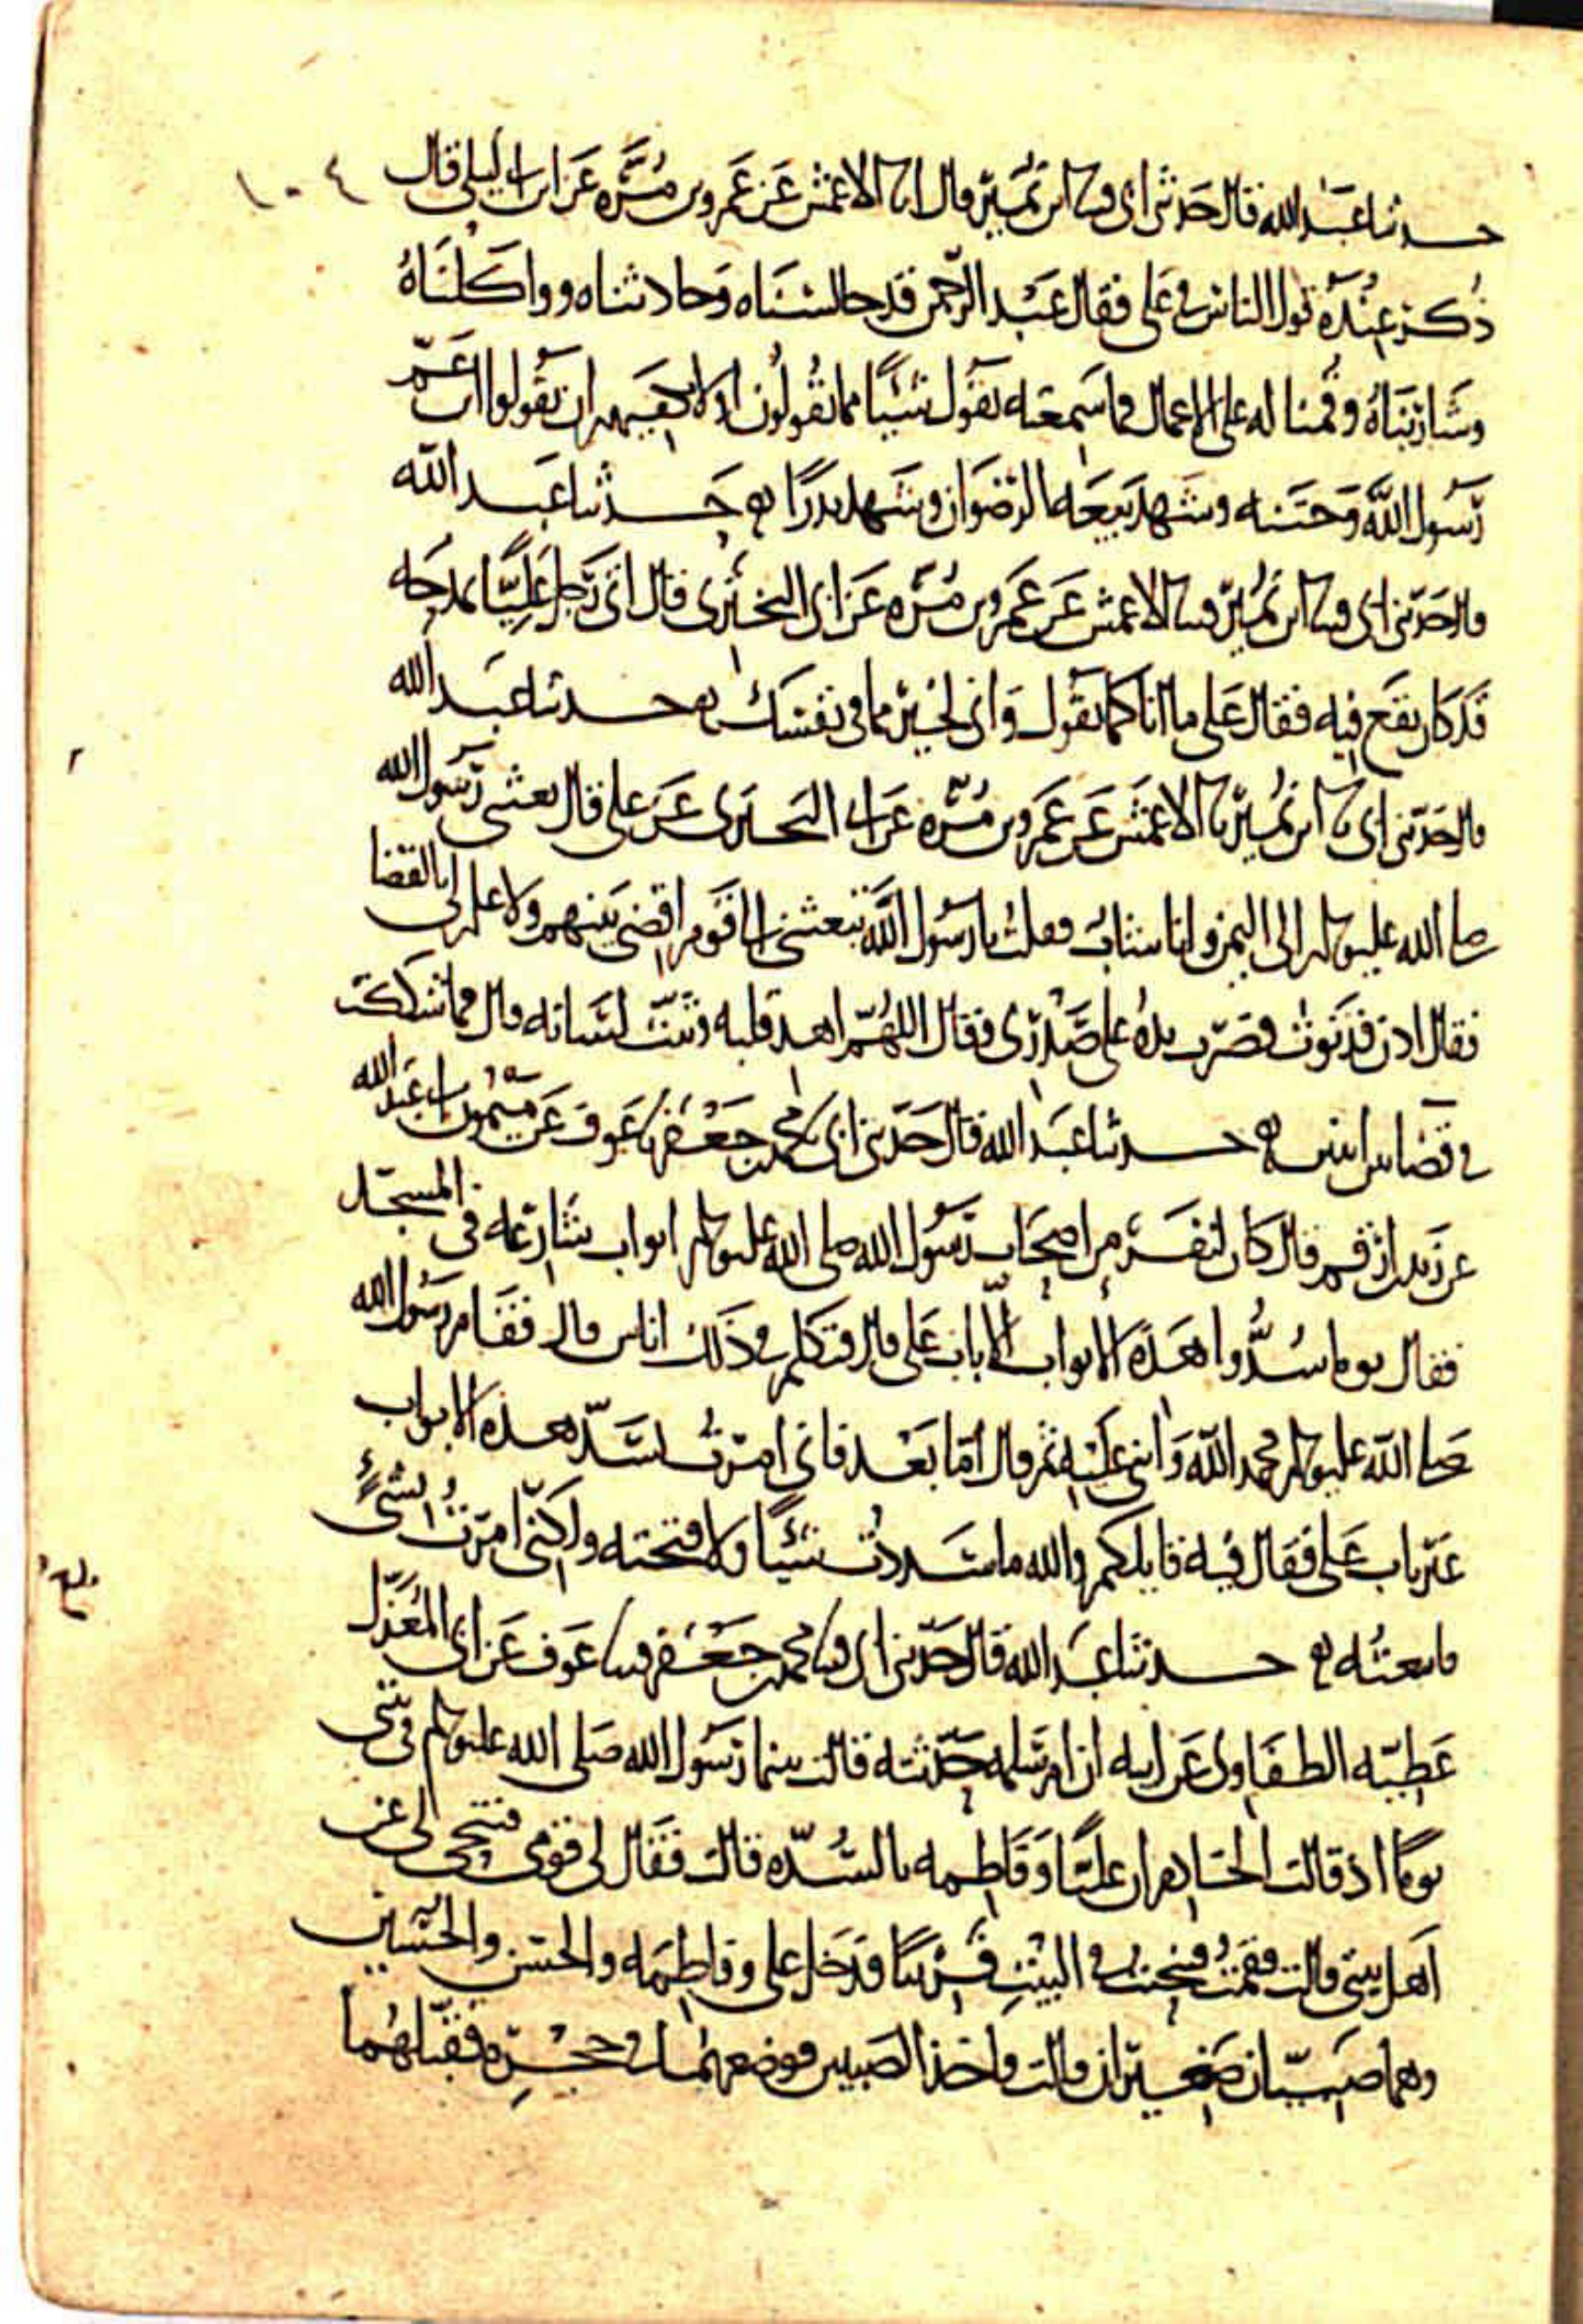 ١٠٤
حدثنا عبد الله قال حدثني ابي قثنا ابن نمير قال انا الاعمش عن عمرو بن مرة عن ابن ابي ليلى قال
ذكر عنده قول الناس في علي فقال عبد الرحمن قد جالسناه وحادثناه وواكلناه
وشاربناه وقمنا له على الاعمال فما سمعته يقول شيئا مما تقولون اولا يكفيكم ان تقولوا ابن عم
رسول الله وختنه وشهد بيعة الرضوان وشهد بدرا حدثنا عبد الله
قال حدثني ابي قثنا ابن نمير قثنا الاعمش عن عمرو بن مرة عن ابي البختري قال اتى رجل عليا يمدحه
قد كان يقع فيه فقال علي ما انا كما تقول واني لخير مما في نفسك حدثنا عبد الله
قال حدثني ابي نا ابن نمير نا الاعمش عن عمرو بن مرة عن ابي البختري عن علي قال بعثني رسول الله
صلى الله عليه وسلم الى اليمن وانا شاب فقلت يا رسول الله تبعثني الى قوم اقضي بينهم ولا علم لي بالقضا
فقال ادن فدنوت فضرب يده على صدري فقال اللهم اهد قلبه وثبت لسانه قال فما شككت
في قضا بين اثنين حدثنا عبد الله قال حدثني ابي نا محمد بن جعفر نا عوف عن ميمون ابي عبد الله
عن زيد بن ارقم قال كان لنفر من اصحاب رسول الله صلى الله عليه وسلم ابواب شارعه في المسجد
فقال يوما سدوا هذه الابواب الا باب علي قال فتكلم في ذلك اناس قال فقام رسول الله
صلى الله عليه وسلم فحمد الله واثنى عليه ثم قال اما بعد فاني امرت بسد هذه الابواب
غير باب علي فقال فيه قايلكم والله ما سددت شيئا ولا فتحته ولكني امرت بشيء
فاتبعته حدثنا عبد الله قال حدثني ابي قثنا محمد بن جعفر قثنا عوف عن ابي المعذل
عطية الطفاوي عن ابيه ان ام سلمه حدثته قالت بينما رسول الله صلى الله عليه وسلم في بيتي
يوما اذ قالت الخادم ان عليا وفاطمه بالسده قالت فقال لي قومي فتنحي لي عن
اهل بيتي قالت فقمت فتنحيت في البيت قريبا فدخل علي وفاطمه والحسن والحسين
وهما صبيان صغيران قالت فاخذ الصبيين فوضعهما في حجره فقبلهما